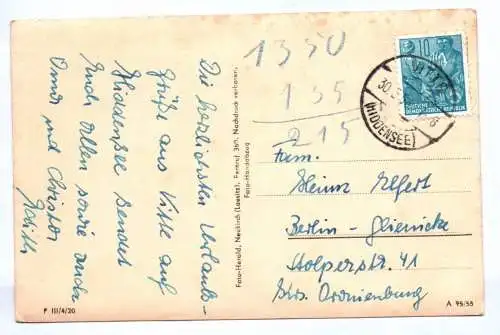 Die herzlichsten Urlaubs-
grüße aus Vitte auf
Hiddensee sendet
Euch Allen sowie auch
Omi und Christor
Edith
P III/4/20
Foto-Herold, Neukirch (Lausitz), Fernruf 369, Nachdruck verboten.
Foto-Handabzug
1350
135
215
10
DEUTSCHE
DEMOKRATISCHE REPUBLIK
VITTE
30.
(HIDDENSEE)
Fam.
Heinz Elfert
Berlin-Glienicke
Stolperstr. 41
Krs. Oranienburg
A 95/55